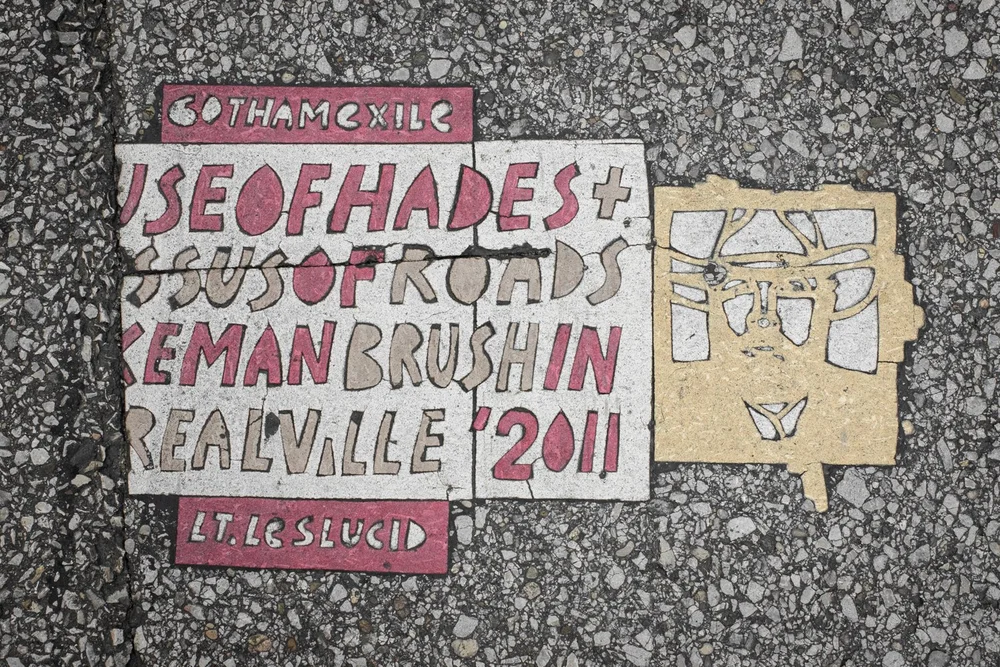 GOTHAMEXILE
USEOFHADES+
SSUSOFROADS
KEMANBRUSHIN
REALViLLE '2011
LT.LeSLUCID